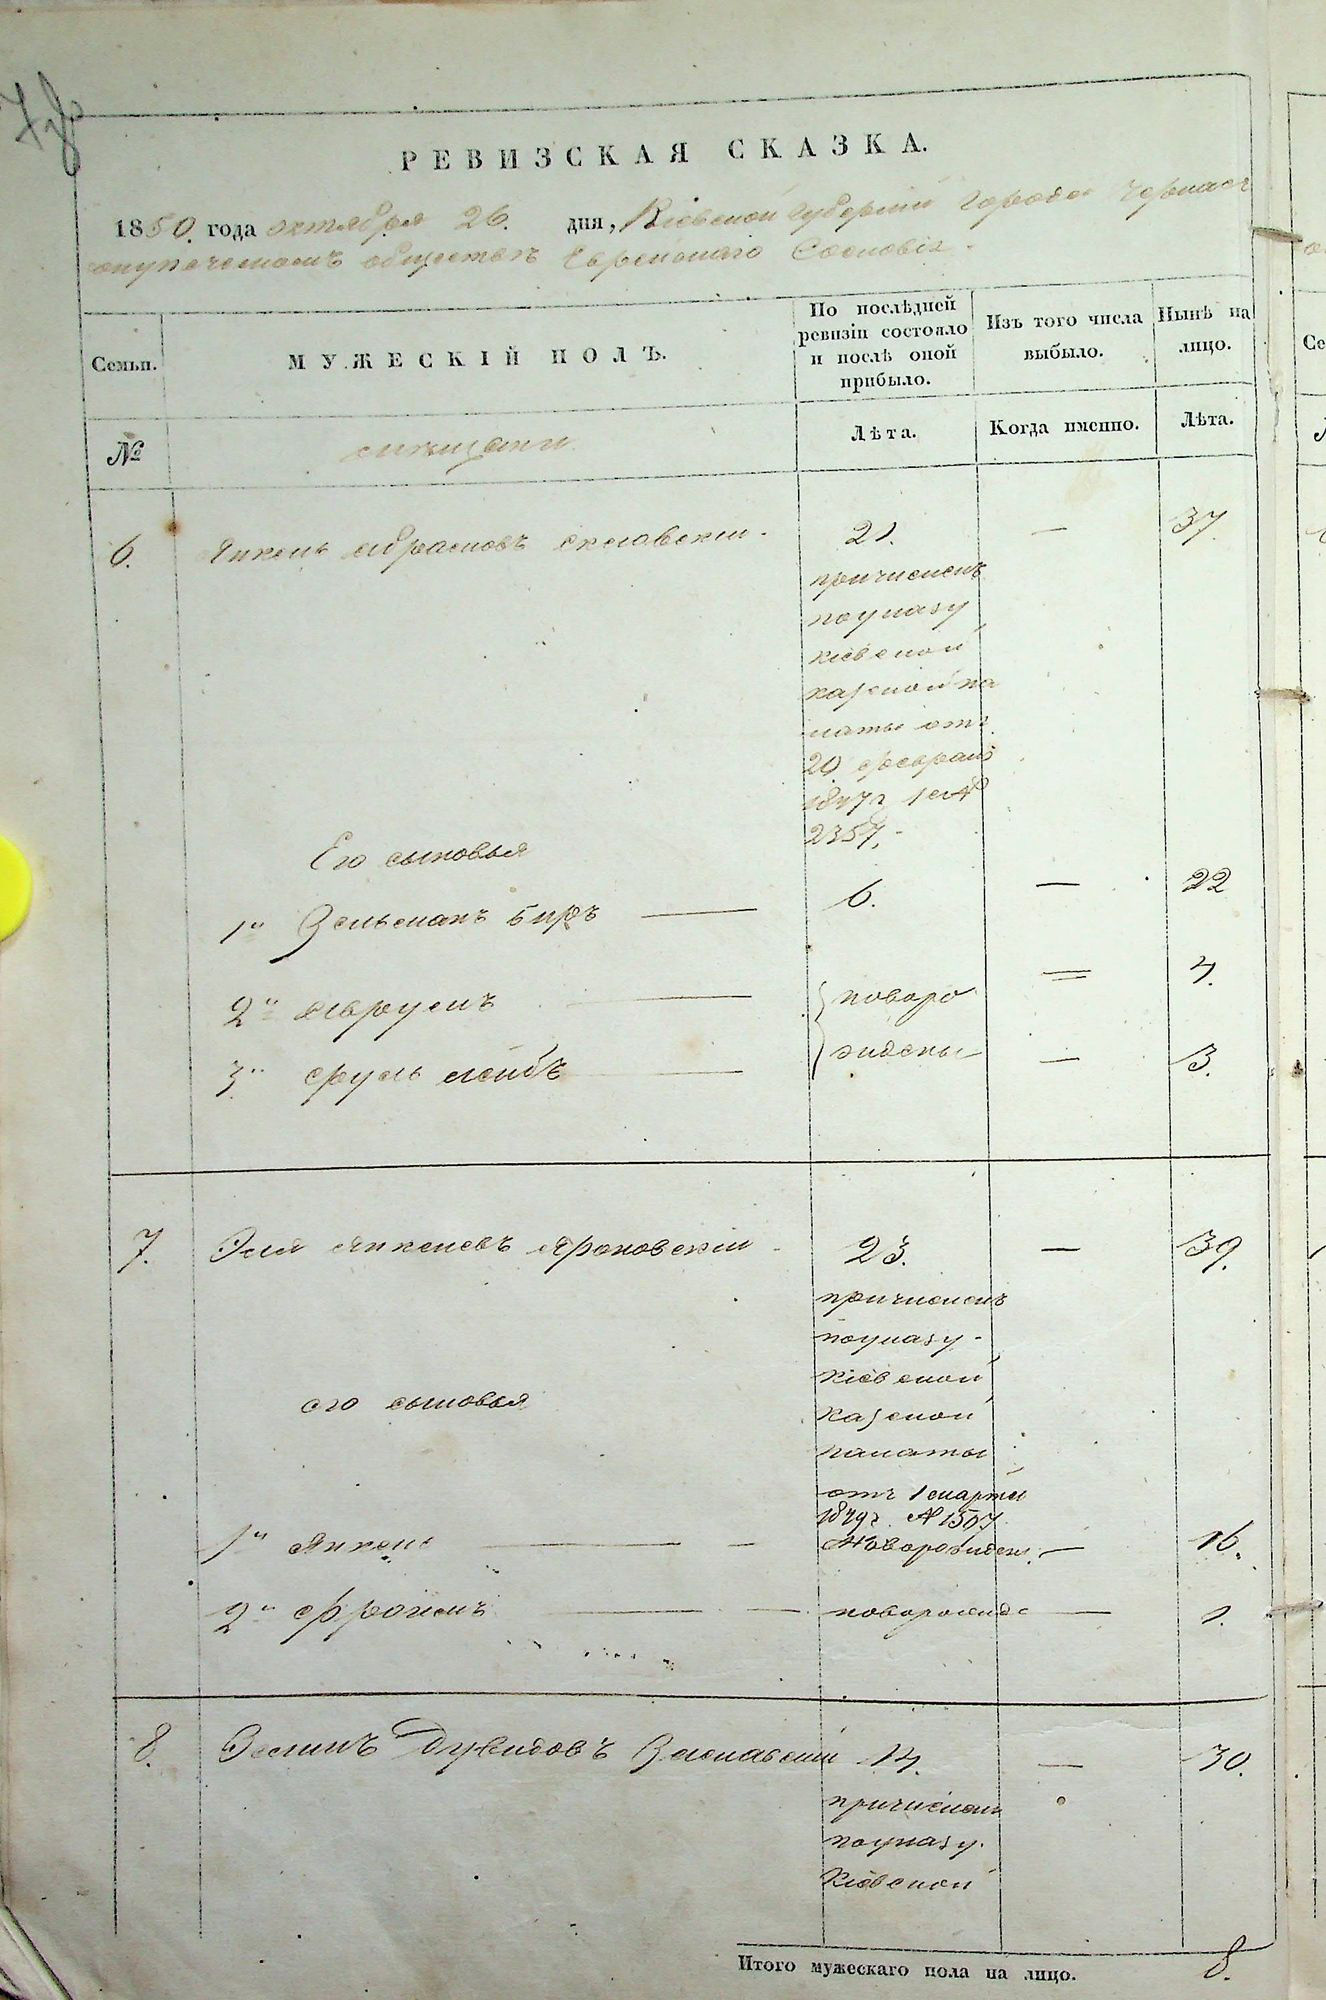 РЕВИЗСКАЯ СКАЗКА.
1850. года октября 26. дня, Кіевской губерніи города Черкасъ
обществѣ Еврейскаго Сословія.
Семьи.
МУЖЕСКІЙ ПОЛЪ.
По послѣдней ревизіи состояло и послѣ оной прибыло.
Изъ того числа выбыло.
Нынѣ на лицо.
№
мѣщане
Лѣта.
Когда именно.
Лѣта.
6.
Янкель Абрамовъ 21. — 37
причисленъ
по указу
Кіевской
казеной па
латы отъ
20 февраля
1847 г за №
2357.
Его сыновья
1й Зельманъ Биръ — 6. — 22
2й Аврумъ — новоро = 4.
3й Сруль Лейбъ — жденъ — 3.
7. Эля Янкелевъ Ароновскій 23. — 39.
причисленъ
по указу
Кіевской
его сыновья
казеной
палаты
отъ 1 марта
1849 г. № 1507
1й Янкель — — Новорожден. — 16.
2й Фроимъ — — новорожде — 1.
8. Зеликъ Дувидовъ Заславскій 14. — 30.
причисленъ
по указу
Кіевской
Итого мужескаго пола на лицо. 8.